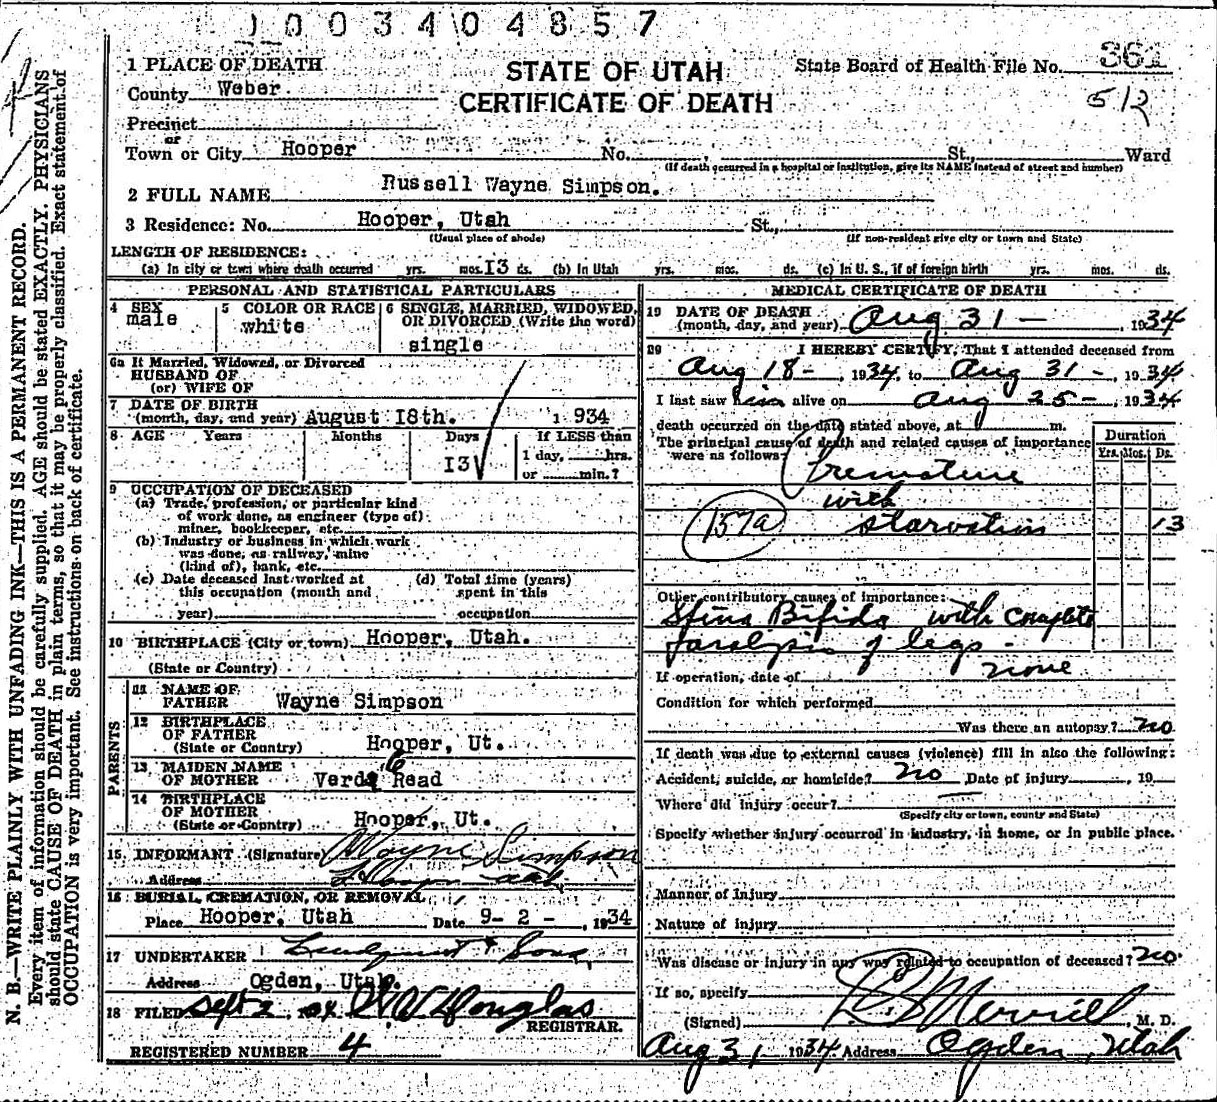 1003404857
1 PLACE OF DEATH
County Weber
Precinct
or
Town or City Hooper No. St. Ward
(If death occurred in a hospital or institution, give its NAME instead of street and number)
STATE OF UTAH
CERTIFICATE OF DEATH
State Board of Health File No. 361
512
2 FULL NAME Russell Wayne Simpson.
3 Residence: No. Hooper, Utah St.,
(Usual place of abode) (If non-resident give city or town and State)
LENGTH OF RESIDENCE:
(a) In city or town where death occurred yrs. mos. 13 ds. (b) In Utah yrs. mos. ds. (c) In U. S., if of foreign birth yrs. mos. ds.
PERSONAL AND STATISTICAL PARTICULARS
4 SEX male
5 COLOR OR RACE white
6 SINGLE, MARRIED, WIDOWED, OR DIVORCED (Write the word)
single
6a If Married, Widowed, or Divorced
HUSBAND OF
(or) WIFE OF
7 DATE OF BIRTH
(month, day, and year) August 18th. 1934
8 AGE Years Months Days If LESS than
13 1 day, hrs.
or min.?
9 OCCUPATION OF DECEASED
(a) Trade, profession, or particular kind
of work done, as engineer (type of)
miner, bookkeeper, etc.
(b) Industry or business in which work
was done, as railway, mine
(kind of), bank, etc.
(c) Date deceased last worked at
this occupation (month and
year)
(d) Total time (years)
spent in this
occupation
10 BIRTHPLACE (City or town) Hooper, Utah.
(State or Country)
PARENTS
11 NAME OF
FATHER Wayne Simpson
12 BIRTHPLACE
OF FATHER
(State or Country) Hooper, Ut.
13 MAIDEN NAME
OF MOTHER Verda Read
14 BIRTHPLACE
OF MOTHER
(State or Country) Hooper, Ut.
15. INFORMANT (Signature) Wayne Simpson
Address
16 BURIAL, CREMATION, OR REMOVAL
Place Hooper, Utah Date 9-2-, 1934
17 UNDERTAKER Lindquist & Sons
Address Ogden, Utah.
18 FILED Sept 2, Douglas
REGISTRAR.
REGISTERED NUMBER 4
MEDICAL CERTIFICATE OF DEATH
19 DATE OF DEATH
(month, day, and year) Aug 31 - , 1934
20 I HEREBY CERTIFY, That I attended deceased from
Aug 18-, 1934, to Aug 31-, 1934
I last saw him alive on Aug 25-, 1934
death occurred on the date stated above, at m.
The principal cause of death and related causes of importance
were as follows:
Duration
Yrs. Mos. Ds.
Premature
with
157a starvation 13
Other contributory causes of importance:
Spina Bifida with complete
paralysis of legs -
If operation, date of none
Condition for which performed
Was there an autopsy? no
If death was due to external causes (violence) fill in also the following:
Accident, suicide, or homicide? no Date of injury , 19
Where did injury occur?
(Specify city or town, county and State)
Specify whether injury occurred in industry, in home, or in public place.
Manner of injury
Nature of injury
Was disease or injury in any way related to occupation of deceased? no.
If so, specify
(Signed) Merrill, M. D.
Aug 31 1934 Address Ogden, Utah
N. B.—WRITE PLAINLY WITH UNFADING INK—THIS IS A PERMANENT RECORD.
Every item of information should be carefully supplied. AGE should be stated EXACTLY. PHYSICIANS
should state CAUSE OF DEATH in plain terms, so that it may be properly classified. Exact statement of
OCCUPATION is very important. See instructions on back of certificate.